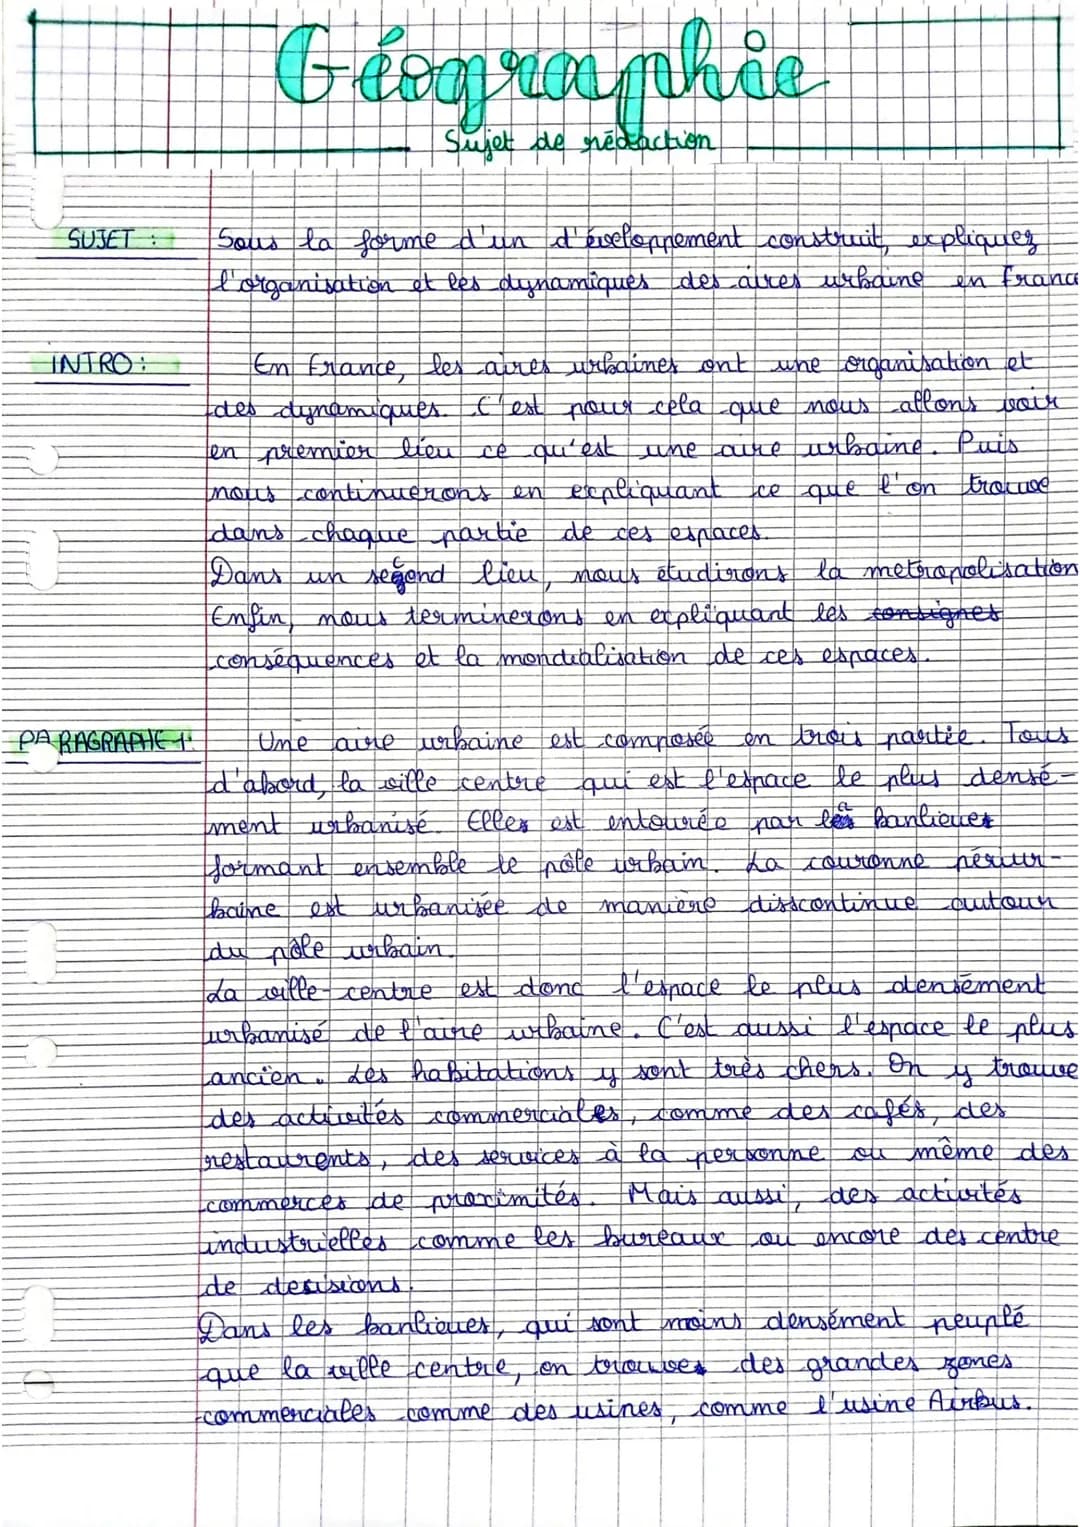 Géographie
Sujet de rédaction
SUJET : Sous la forme d'un d'éveloppement construit, expliquez
l'organisation et les dynamiques des aires urbaine en France
INTRO : En France, les aires urbaines ont une organisation et
des dynamiques. C'est pour cela que nous allons voir
en premier lieu ce qu'est une aire urbaine. Puis
nous continuerons en expliquant ce que l'on trouve
dans chaque partie de ces espaces.
Dans un second lieu, nous étudirons la metropolisation
Enfin, nous terminerons en expliquant les consignes
conséquences et la mondialisation de ces espaces.
PARAGRAPHE 1: Une aire urbaine est composée en trois partie. Tous
d'abord, la ville centre qui est l'espace le plus densé-
ment urbanisé. Elles est entourée par la banlieues
formant ensemble le pôle urbain. La couronne périur-
baine est urbanisée de manière disscontinue autour
du pôle urbain.
La ville-centre est donc l'espace le plus densément
urbanisé de l'aire urbaine. C'est aussi l'espace le plus
ancien. Les habitations y sont très chers. On y trouve
des activités commerciales, comme des cafés, des
restaurents, des services à la personne ou même des
commerces de proximités. Mais aussi, des activités
industrielles comme les bureaux ou encore des centre
de desisions.
Dans les banlieues, qui sont moins densément peuplé
que la ville centre, on trouves des grandes zones
commerciales comme des usines, comme l'usine Airbus.